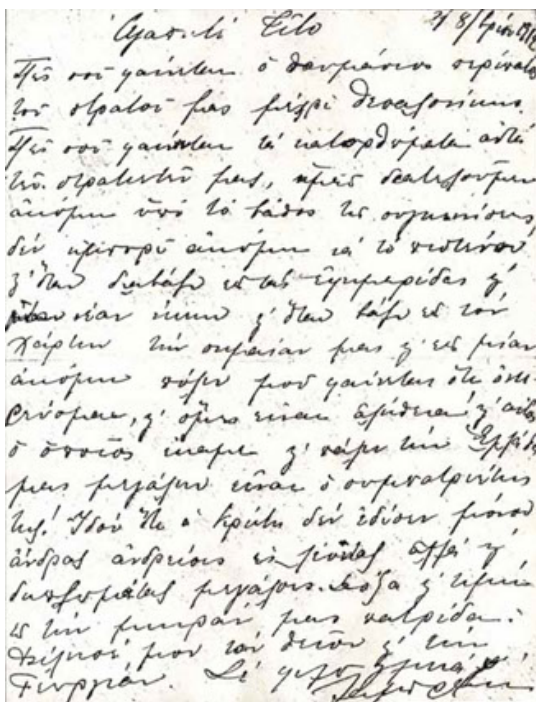 Ἀγαπητέ Τίτο
Πῶς σοῦ φαίνεται ὁ θαυμάσιος περίπατος
τοῦ στρατοῦ μας μέχρι Θεσσαλονίκης.
Πῶς σοῦ φαίνεται τὰ κατορθώματα αὐτὰ
τοῦ στρατοῦ μας, ἡμεῖς διατελοῦμεν
ἀκόμη ὑπὸ τὸ βάθος τῆς συγκινήσεως
δὲν ἠμπορῶ ἀκόμη νὰ τὸ πιστεύσω
κ' ὅταν διαβάζω εἰς τὰς ἐφημερίδας κ'
νέαν νίκην κ' ὅταν βάζω εἰς τὸν
χάρτην τὴν σημαίαν μας κ' εἰς μίαν
ἀκόμη πόλιν μοῦ φαίνεται ὅτι ὀνει-
ρεύομαι, κ' ὅμως εἶναι ἀλήθεια κ' αὐτὸς
ὁ ὁποῖος ἔκαμε κ' πάλιν τὴν Ἑλλάδα
μας μεγάλην εἶναι ὁ συμπατριώτης
της! Ἰδοὺ ὅτι ἡ Κρήτη δὲν ἔδωσεν μόνον
ἄνδρας ἀνδρείους ἀλλὰ κ'
διπλωμάτας μεγάλους. Δόξα κ' τιμὴ
εἰς τὴν μικράν μας πατρίδα.
Φίλησέ μου τὸν θεῖον κ' τὴν
Γεωργίαν. Σὲ φιλῶ